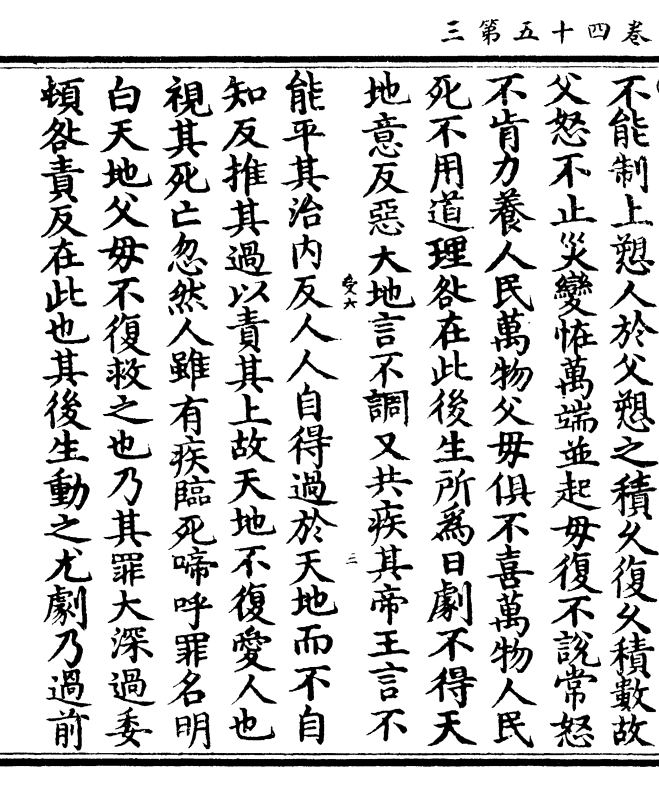 卷四十五第三
不能制上愬人於父愬之積久復久積數故
父怒不止災變恠萬端並起毋復不說常怒
不肯力養人民萬物父毋俱不喜萬物人民
死不用道理咎在此後生所爲日劇不得天
地意反惡大地言不調又共疾其帝王言不
受六
三
能平其治内反人人自得過於天地而不自
知反推其過以責其上故天地不復愛人也
視其死亡忽然人雖有疾臨死啼呼罪名明
白天地父毋不復救之也乃其罪大深過委
頓咎責反在此也其後生動之尤劇乃過前